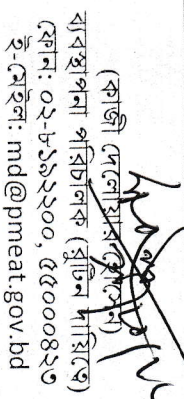 (কাজী দেলোয়ার হোসেন)
ব্যবস্থাপনা পরিচালক (রুটিন দায়িত্ব)
ফোন: ০২-৮১৯২২০০, ৫৫০০০৪২৩
ই-মেইল: md@pmeat.gov.bd